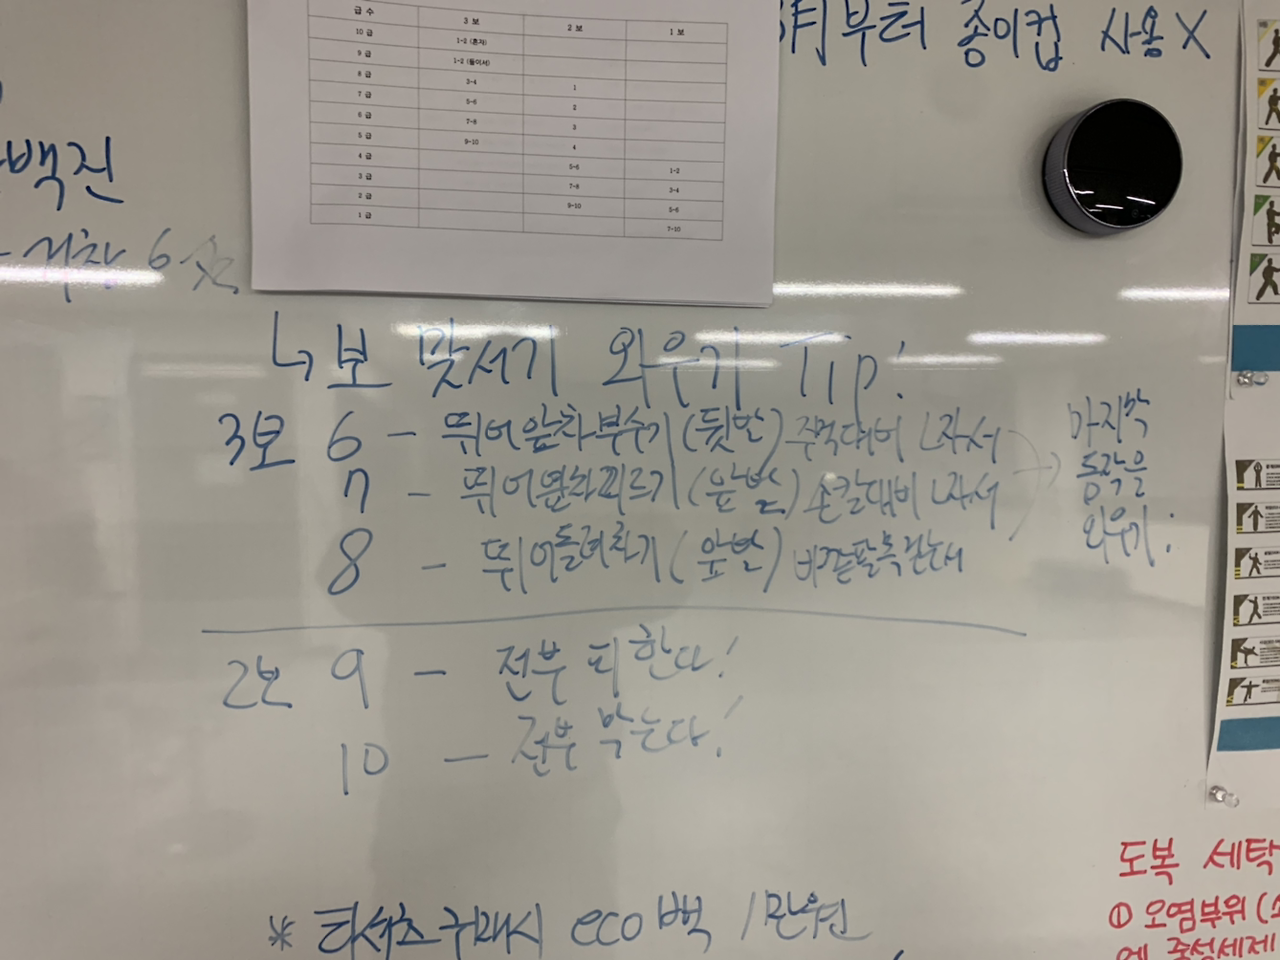 급 수 3 보 2 보 1 보
10 급 1-2 (혼자)
9 급 1-2 (둘이서)
8 급 3-4 1
7 급 5-6 2
6 급 7-8 3
5 급 9-10 4
4 급 5-6 1-2
3 급 7-8 3-4
2 급 9-10 5-6
1 급 7-10
월부터 종이컵 사용 X
백전
6
↳ 보 맞서기 외우기 Tip!
3보 6 - 뛰어앞차부수기 (뒷발) 주먹대비 ㄴ자서
7 - 뛰어옆차찌르기 (앞발) 손칼대비 ㄴ자서
8 - 뛰어돌려차기 (앞발) 바깥팔목 걷는서
→ 마지막
동작을
외우기!
2보 9 - 전부 피한다!
10 - 전부 막는다!
* 티셔츠 구매시 eco백 1만원
도복 세탁
① 오염부위 (
에 중성세제